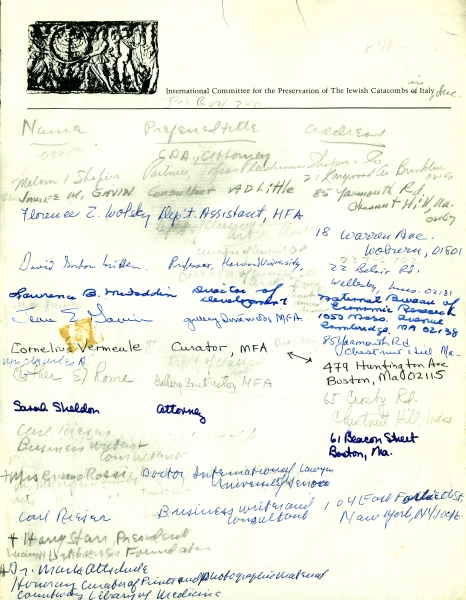 International Committee for the Preservation of The Jewish Catacombs of Italy, Inc.
in
Name Preferred title address
CPA, Attorney
Melvin I Shapiro Partner,
21 Longwood Ave Brookline
James M. GAVIN Consultant AD Little 85 Yarmouth Rd.
Chestnut Hill, Ma.
02167
Florence Z. Wolsky Dep't. Assistant, MFA
18 Warren Ave.
Woburn, 01801
David Gordon Mitten Professor, Harvard University,
Wellesley, Mass. 02181
Laurence B. Director of development
National Bureau of Economic Research
1050 Mass. Avenue
Cambridge, MA 02138
Jean E Gavin gallery Instructor MFA
85 Yarmouth Rd
Chestnut Hill Ma.
Cornelius Vermeule Curator, MFA
479 Huntington Ave
Boston, Ma 02115
Mrs Charles A
(Esther E) Rome Gallery Instructor, MFA
65 Crosby Rd.
Chestnut Hill, Mass
Sarah Sheldon attorney
61 Beacon Street
Boston, Ma.
Carl Rieser
Business writer
consultant
+ Mrs Bruno Rossi Doctor International Lawyer
University Genova
Carl Rieser Business writer and consultant
104 East St
New York, NY
+ Harry Starr President
Lucius N Littauer Foundation
Dr. Mark Altschule
Honorary Curator of Prints and photographic Material
Countway Library of Medicine